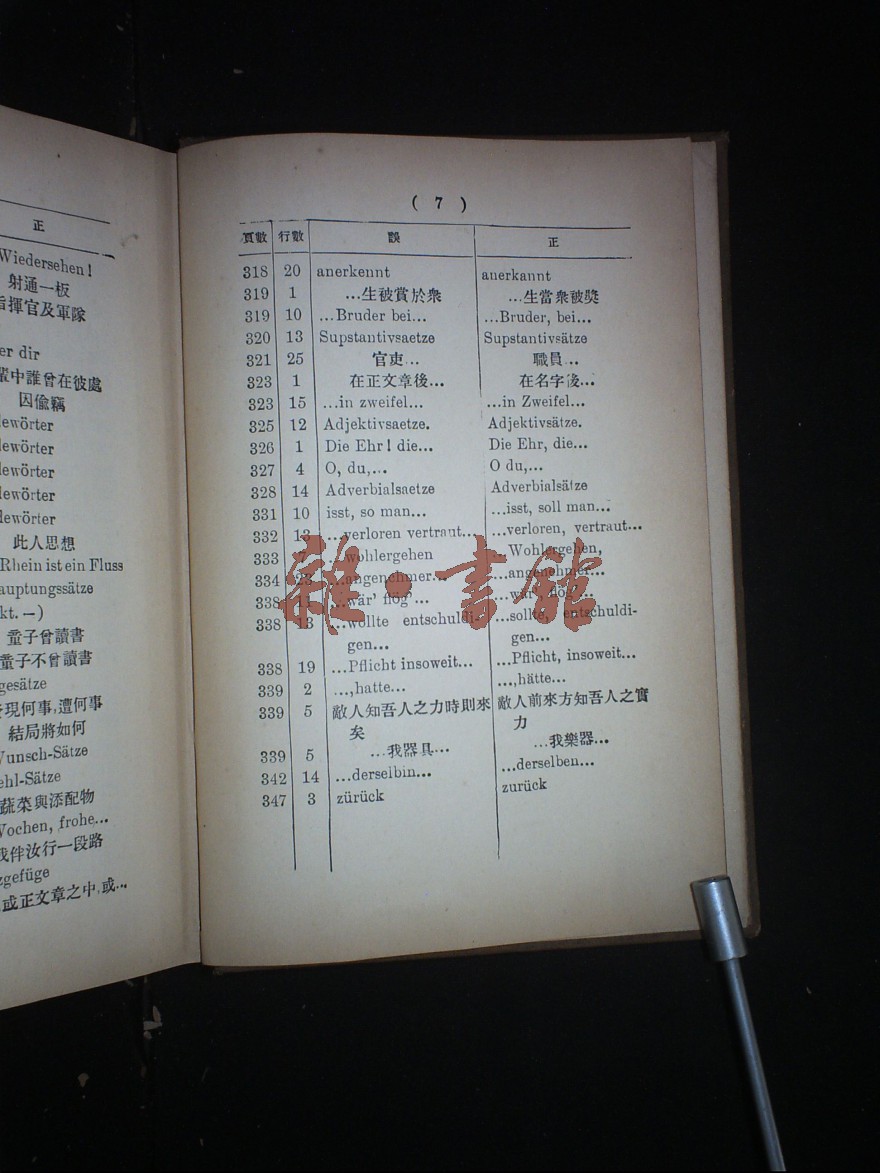 正
Wiedersehen!
射通一板
指揮官及軍隊
er dir
輩中誰曾在彼處
因偸竊
lewörter
lewörter
lewörter
lewörter
lewörter
此人思想
Rhein ist ein Fluss
auptungssätze
kt. —)
童子曾讀書
童子不曾讀書
gesätze
發現何事,遭何事
結局將如何
Wunsch-Sätze
ehl-Sätze
蔬菜與添配物
Wochen, frohe...
我伴汝行一段路
zgefüge
或正文章之中,或...
( 7 )
頁數 行數 誤 正
318 20 anerkennt anerkannt
319 1 ...生被賞於衆 ...生當衆被獎
319 10 ...Bruder bei... ...Bruder, bei...
320 13 Supstantivsaetze Supstantivsätze
321 25 官吏... 職員...
323 1 在正文章後... 在名字後...
323 15 ...in zweifel... ...in Zweifel...
325 12 Adjektivsaetze. Adjektivsätze.
326 1 Die Ehr! die... Die Ehr, die...
327 4 O, du,... O du,...
328 14 Adverbialsaetze Adverbialsätze
331 10 isst, so man... ...isst, soll man...
332 13 ...verloren vertraut... ...verloren, vertraut...
333 7 ...wohlergehen ...Wohlergehen,
334 23 ...angenchmer... ...angenehmer...
338 11 ...wär' flög'... ...wär', flög'...
338 13 ...wollte entschuldi- ...sollte, entschuldi-
gen... gen...
338 19 ...Pflicht insoweit... ...Pflicht, insoweit...
339 2 ...,hatte... ...,hätte...
339 5 敵人知吾人之力時則來 敵人前來方知吾人之實
矣 力
339 5 ...我器具... ...我樂器...
342 14 ...derselbin... ...derselben...
347 3 zürück zurück
雜·書館